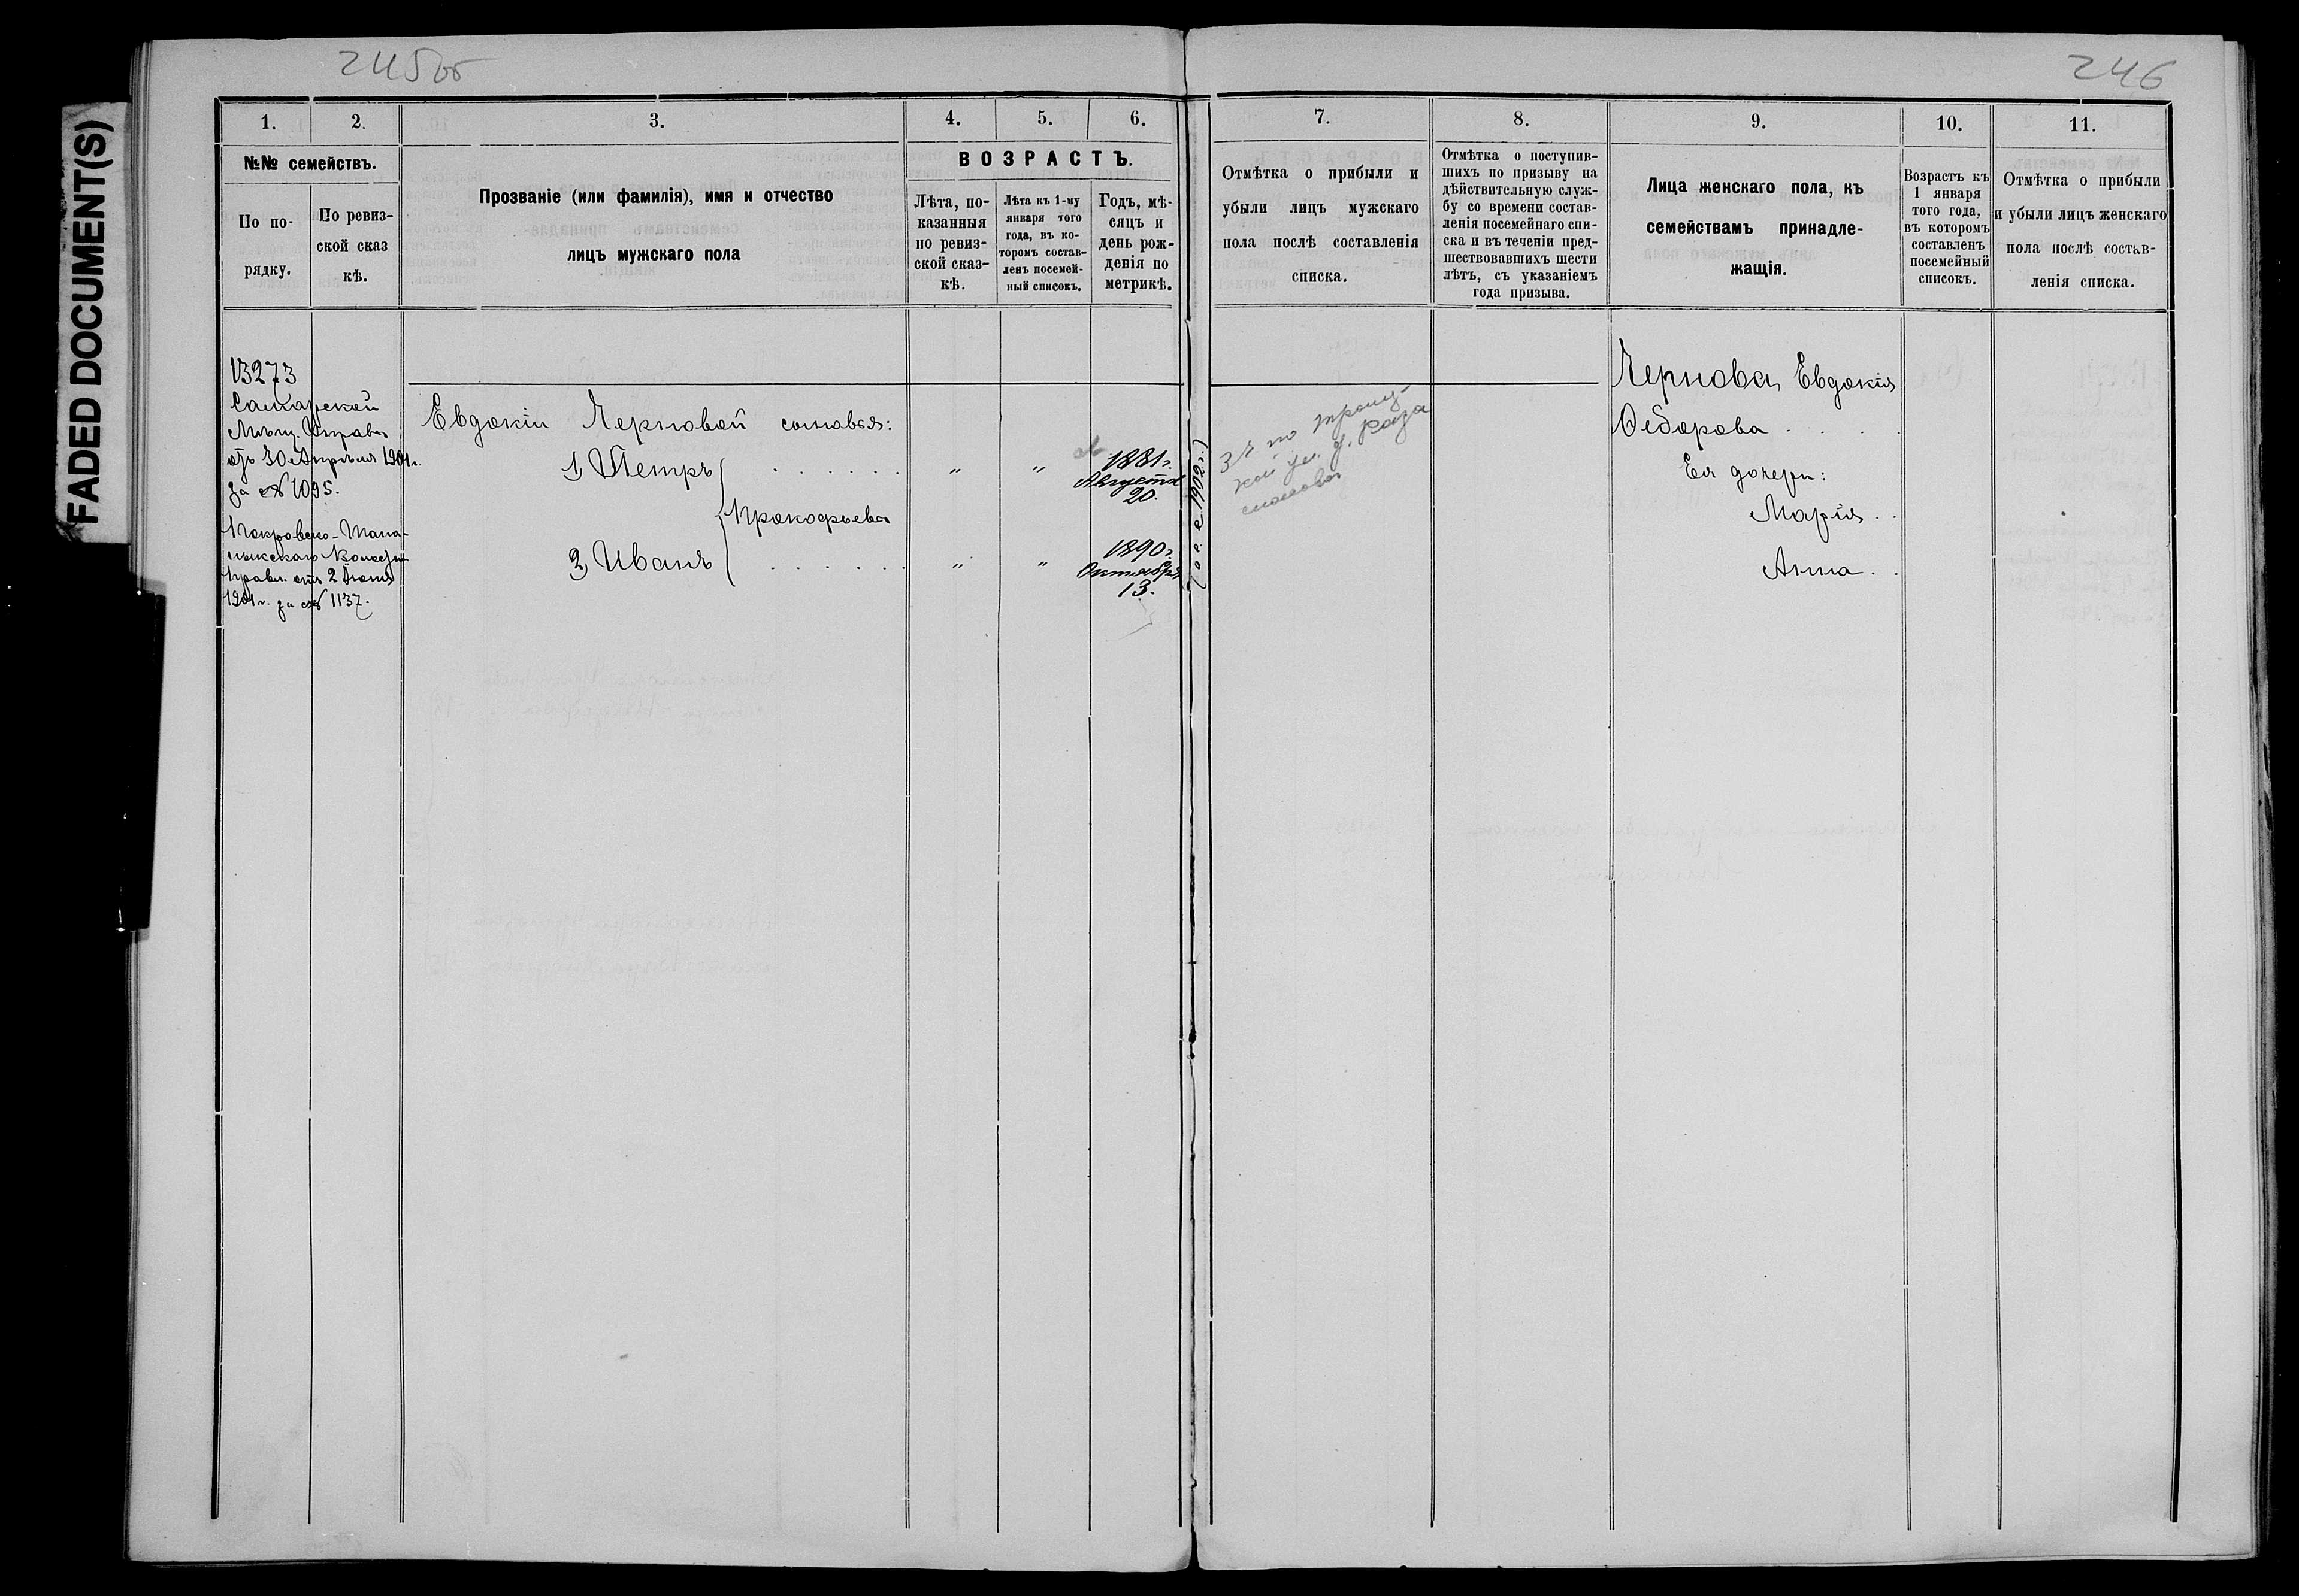 FADED DOCUMENT(S)
245об
246
1.
2.
3.
4.
5.
6.
7.
8.
9.
10.
11.
№№ семействъ.
По по-
рядку.
По ревиз-
ской сказ
кѣ.
Прозваніе (или фамилія), имя и отчество
лицъ мужскаго пола
ВОЗРАСТЪ.
Лѣта, по-
казанныя
по ревиз-
ской сказ-
кѣ.
Лѣта къ 1-му
января того
года, въ ко-
торомъ состав-
ленъ посемей-
ный списокъ.
Годъ, мѣ-
сяцъ и
день рож-
денія по
метрикѣ.
Отмѣтка о прибыли и
убыли лицъ мужскаго
пола послѣ составленія
списка.
Отмѣтка о поступив-
шихъ по призыву на
дѣйствительную служ-
бу со времени состав-
ленія посемейнаго спи-
ска и въ теченіи пред-
шествовавшихъ шести
лѣтъ, съ указаніемъ
года призыва.
Лица женскаго пола, къ
семействамъ принадле-
жащія.
Возрастъ къ
1 января
того года,
въ которомъ
составленъ
посемейный
списокъ.
Отмѣтка о прибыли
и убыли лицъ женскаго
пола послѣ состав-
ленія списка.
13273
Самарской
Мѣщ. Управы
отъ 30 Апрѣля 1901 г.
за № 1095.
Покровско-
Правл. отъ 2 Іюня
1901 г. за № 1137.
Евдокіи Черновой сыновья:
1, Петръ
Прокофьевы
2, Иванъ
" "
" "
1881 г.
Августа
20.
1890 г.
Октября
13.
(1902 г.
по
ул. д.
Чернова Евдокія
Ѳедорова
Ея дочери:
Марія
Анна